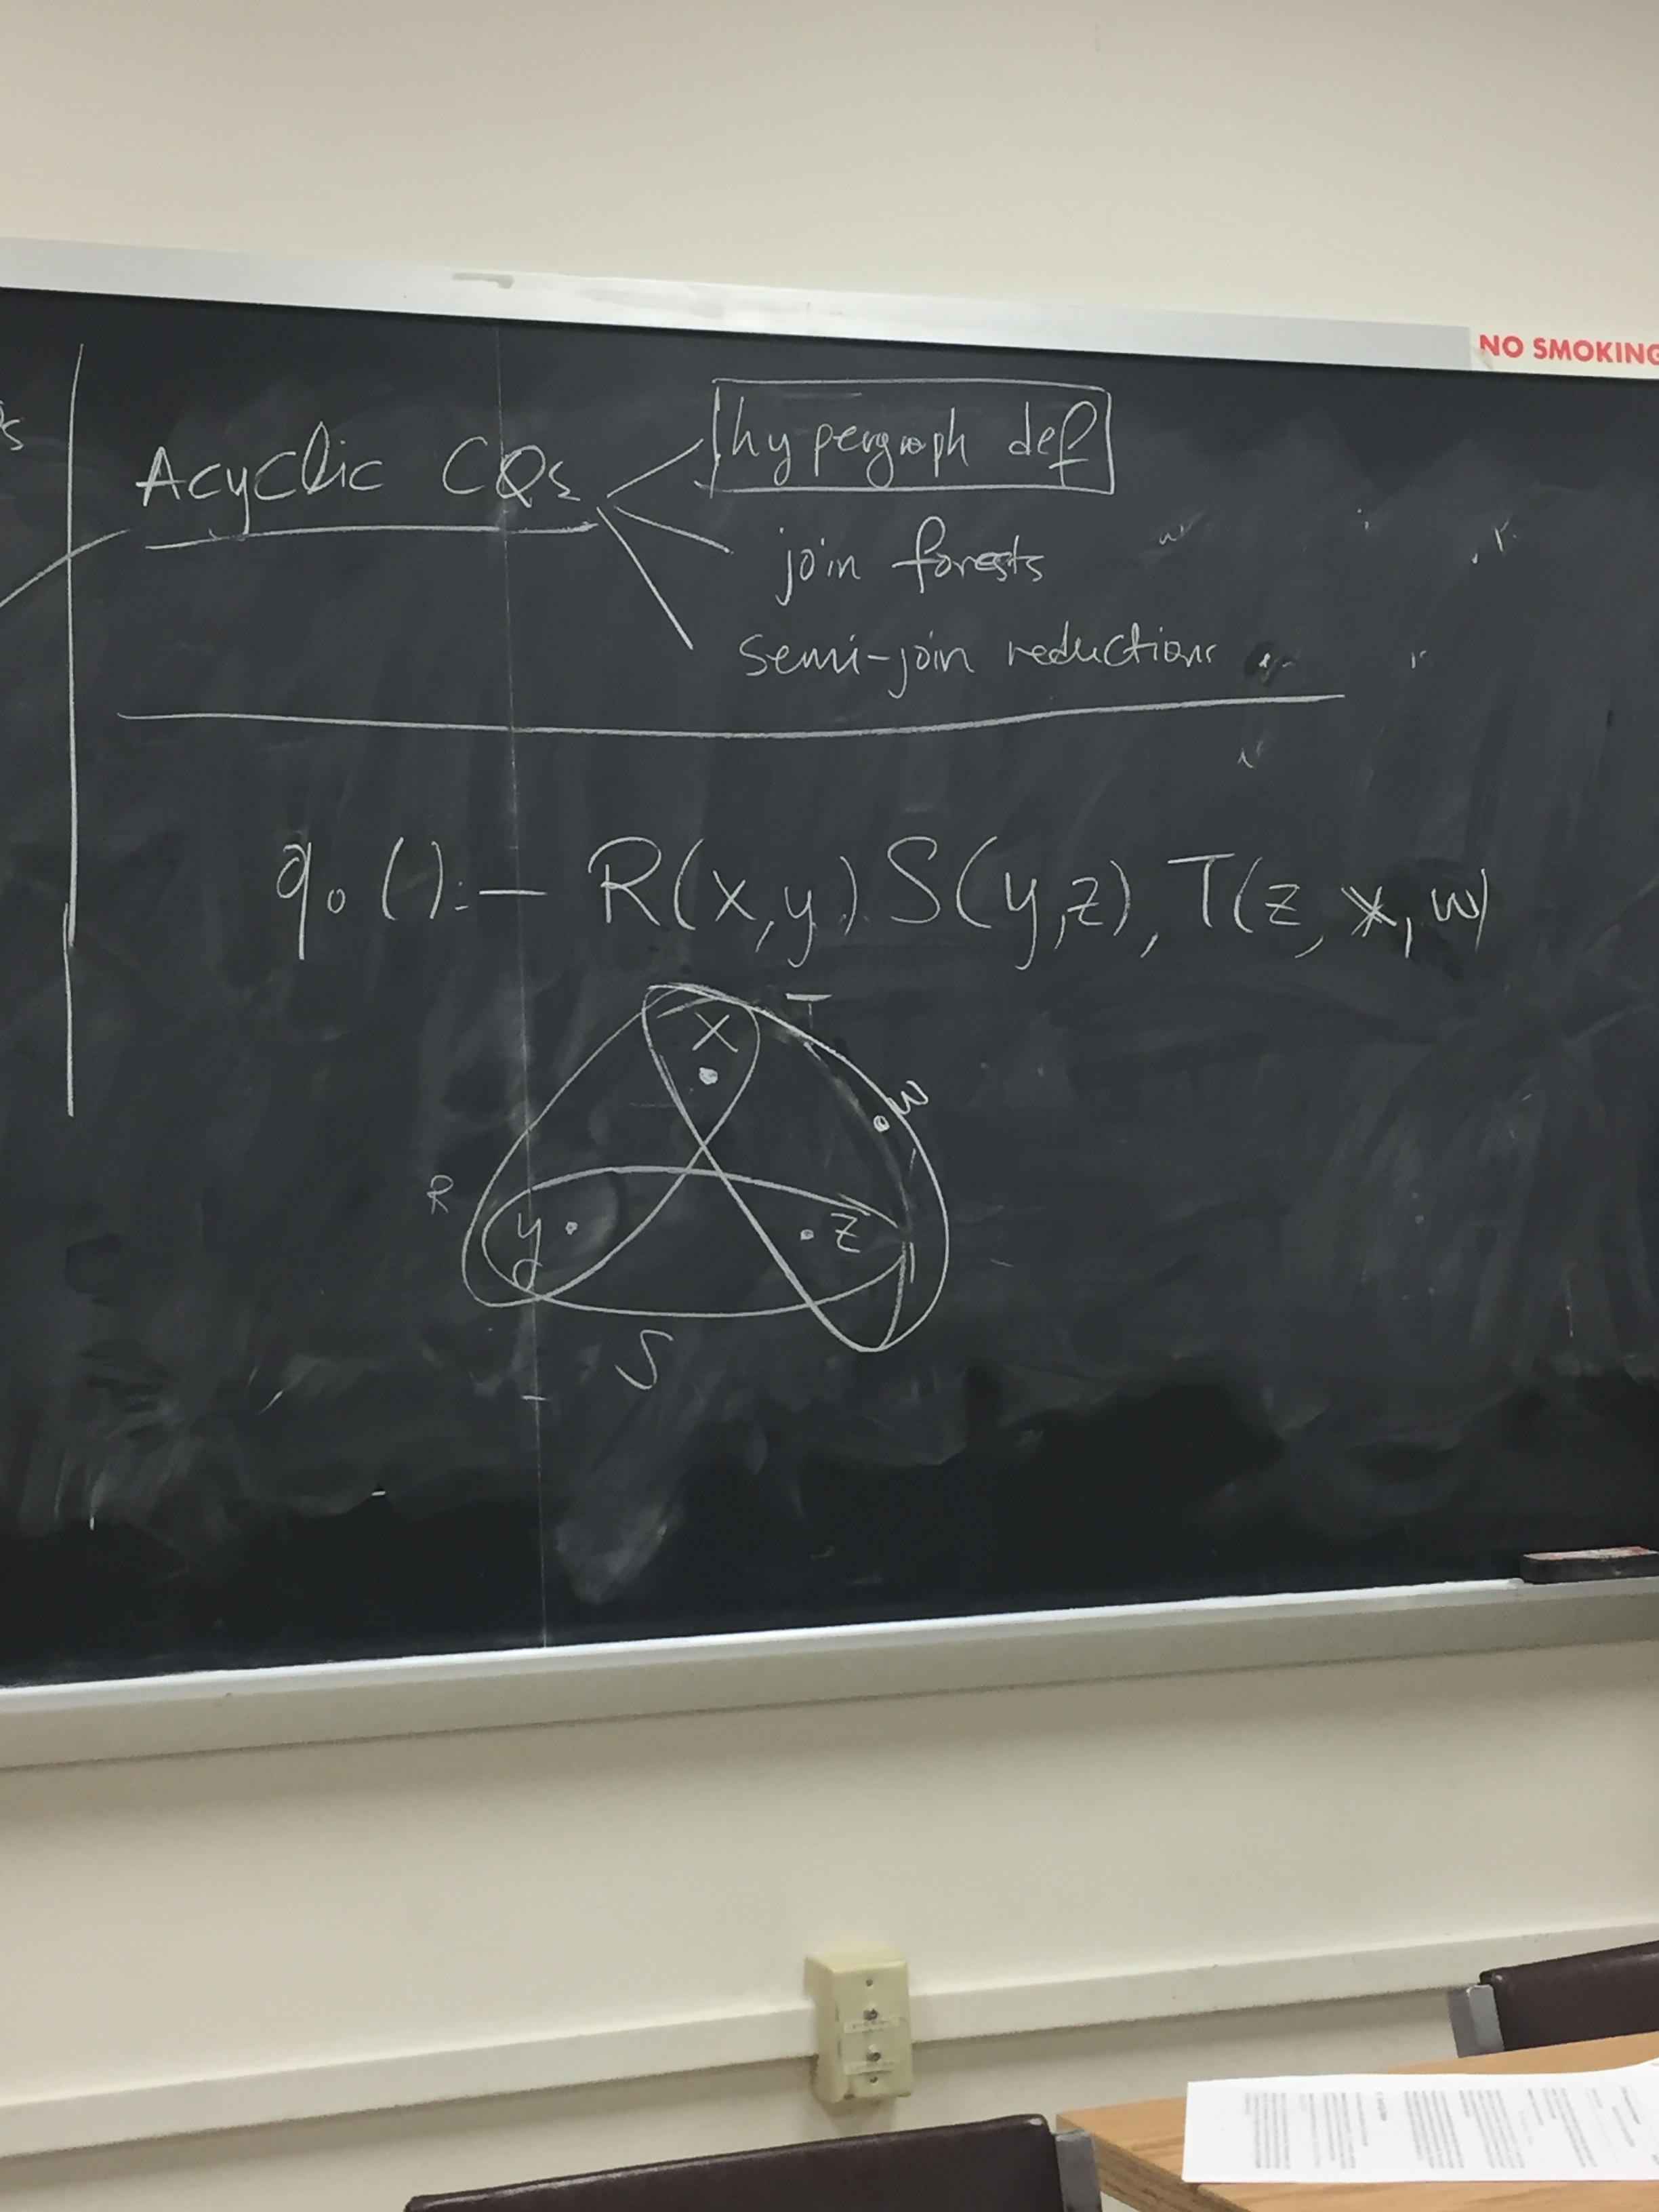 NO SMOKING
Acyclic CQs
hypergraph def
join forests
semi-join reductions
q₀ () :- R(x,y) S(y,z), T(z, x, w)
T
X
w
R
y
z
S